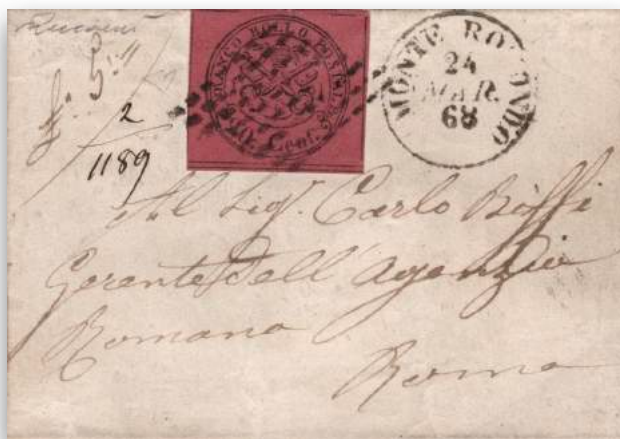 5:11
2
1189
FRANCO BOLLO POSTALE
Cent.
MONTE ROTONDO
24
MAR.
68
Al Sig.r Carlo
Gerente dell'Agenzia
Romana
Roma